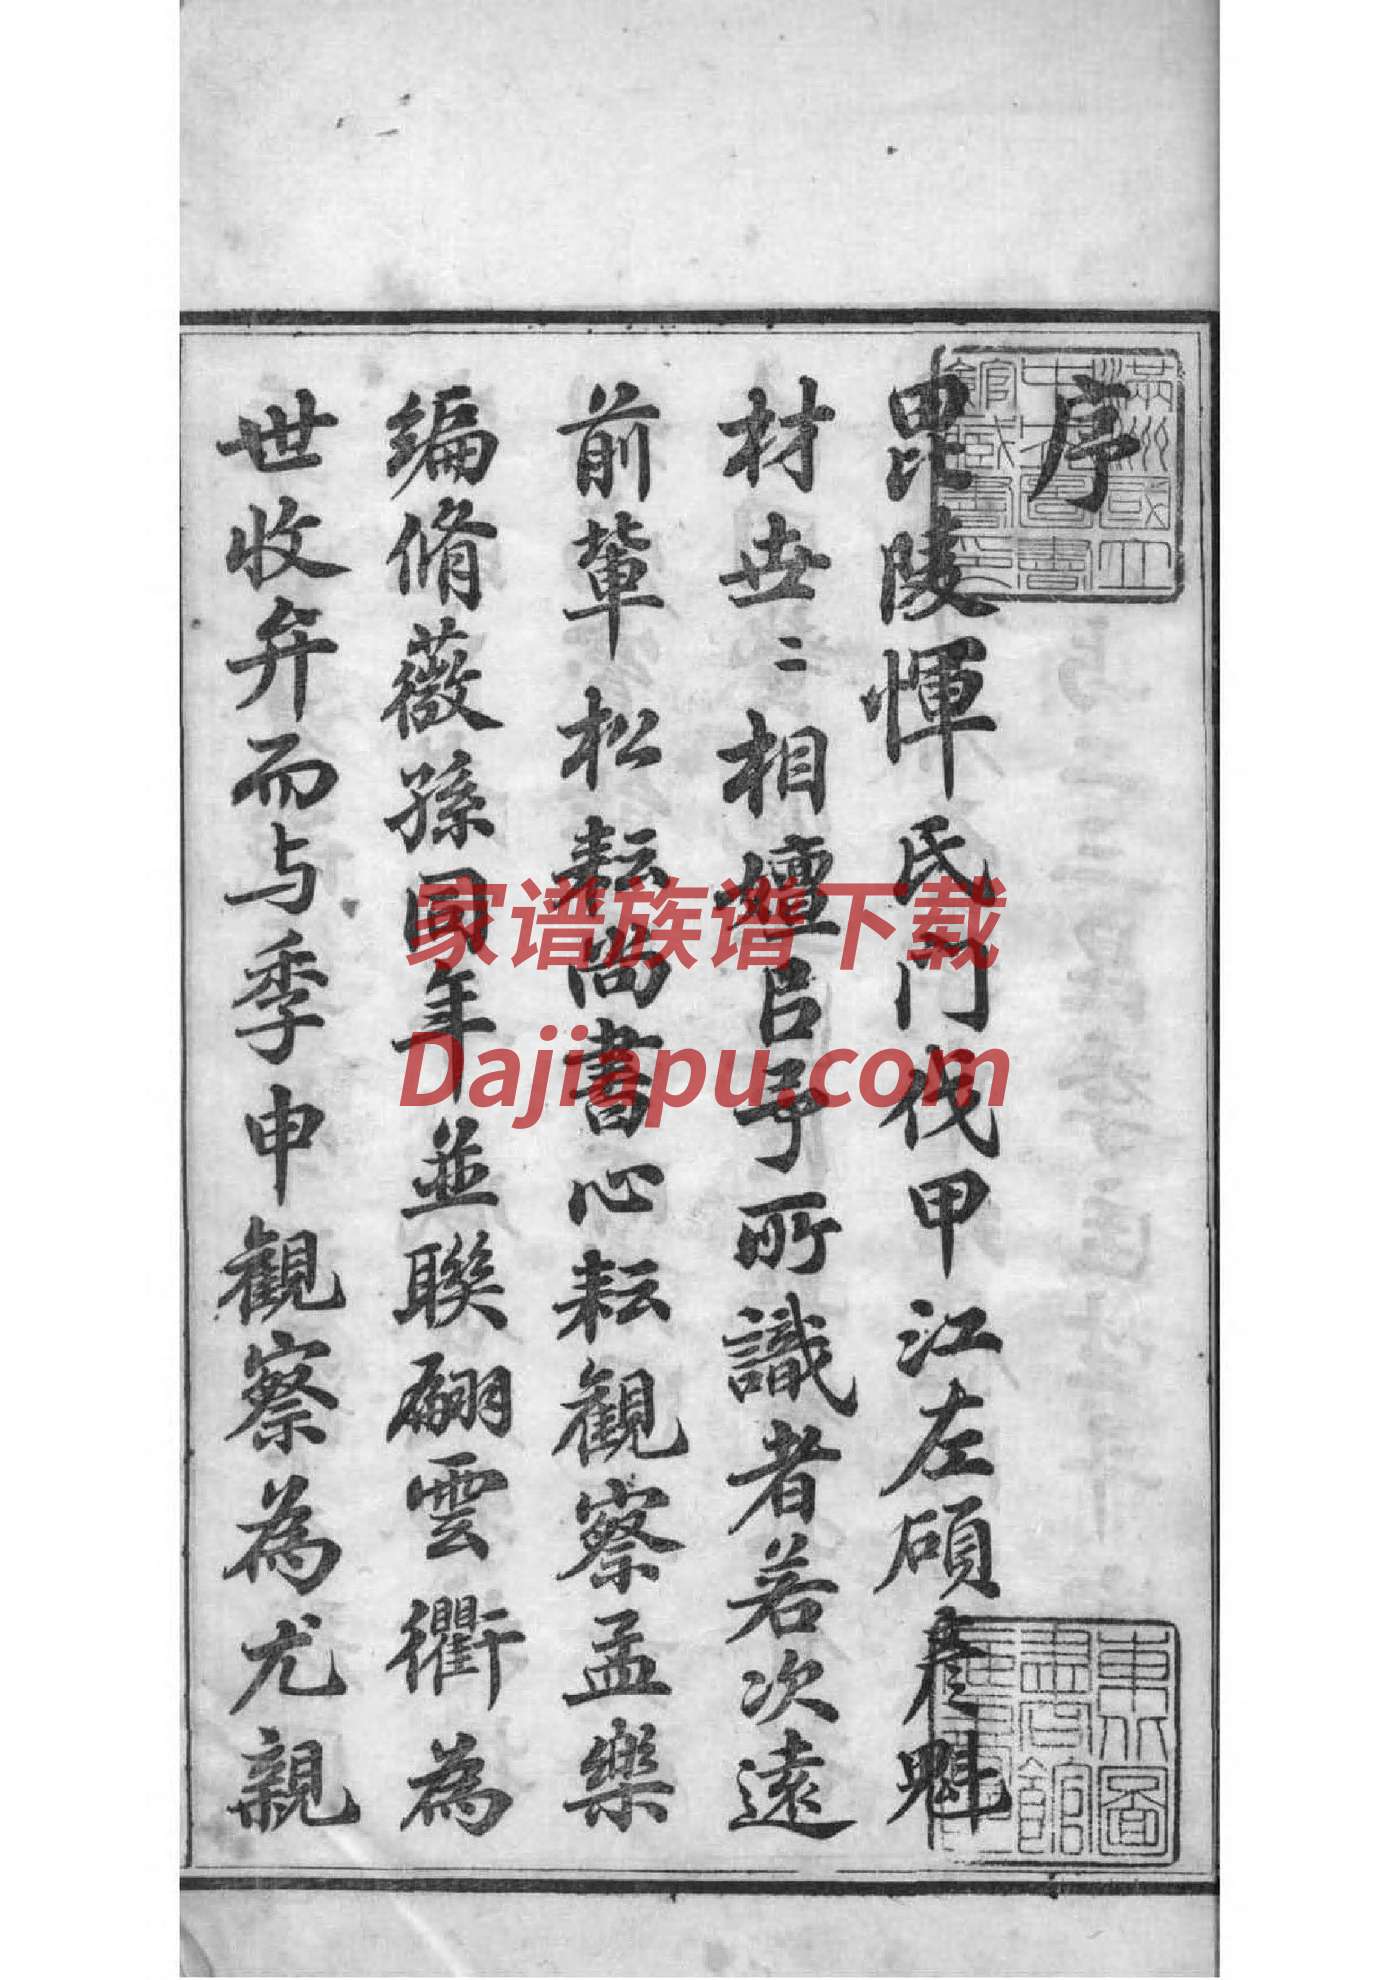 序
毘陵惲氏門伐甲江左碩彥魁
材世〻相嬗吕予所識者若次遠
前輩松耘尚書心耘觀察孟樂
編脩薇孫同年並聯翩雲衢為
世收弁而与季申觀察為尤親
家谱族谱下载
Dajiapu.com
東北圖書館